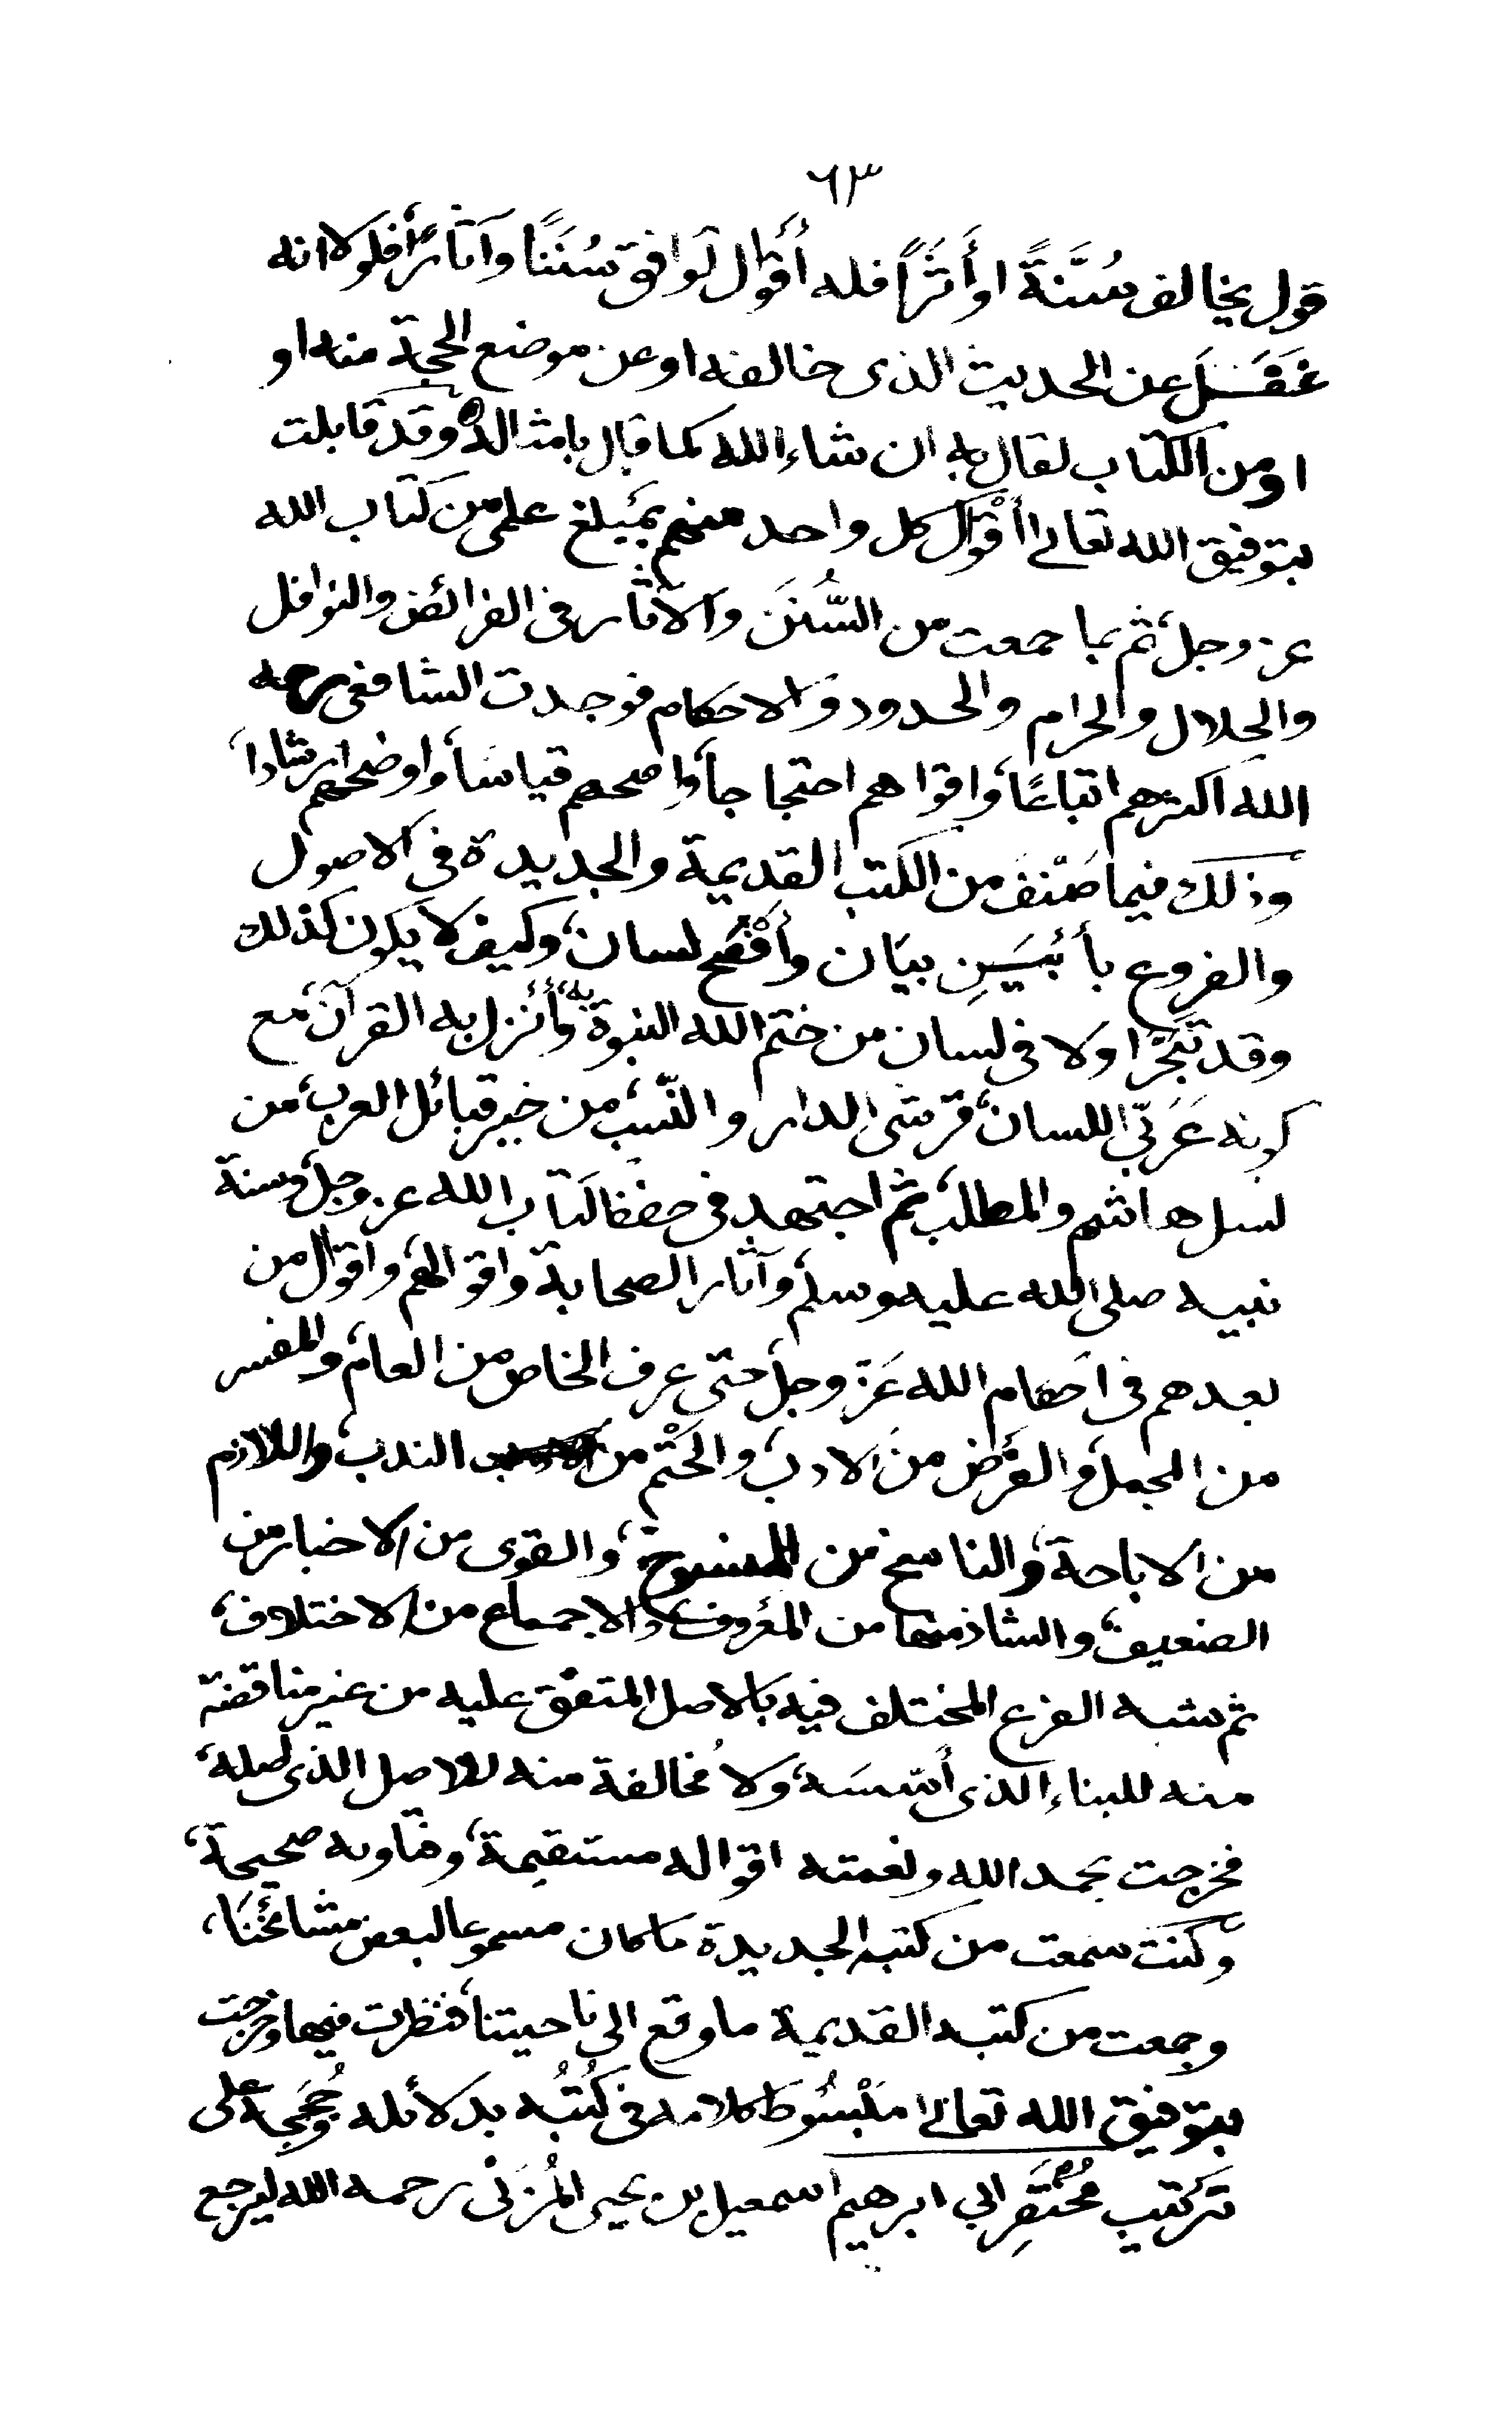 ٦٣
قول يخالف سُنَّةً او أَثَرًا فله أَقوال توافق سُنَنًا وآثارًا، فلولا انه
غَفَلَ عن الحديث الذى خالفه او عن موضع الحجة منه او
او من الكتاب لقال به ان شاء الله كما قال بامثاله وقد قابلت
بتوفيق الله تعالى أقوال كل واحد منهم بمبلغ علمى من كتاب الله
عز وجل، ثم بما جمعت من السُّنَن والآثار فى الفرائض والنوافل
والحلال والحرام والحدود والاحكام فوجدت الشافعى رحمه
الله اكثرهم اتباعًا، واقواهم احتجاجاً، واصحهم قياسَاً، واوضحهم ارشاداً،
وذلك فيما صَنّف من الكتب القديمة والجديدة فى الاصول
والفروع بأبْيَنِ بيَان وأفْصَح لسان، وكيف لا يكون كذلك
وقد تبَحَّرَ اولا فى لسان من ختم الله النبوة به، وأنزل به القرآن، مع
كونه عَرَبّى اللسان، قرشى الدار والنّسب، من خير قبائل العرب، من
نسل هاشم والمطلب، ثم اجتهد فى حفظ كتاب الله عز وجل، وسنة
نبيه صلى الله عليه وسلم، وآثار الصحابة واقوالهم، واقوال من
بعدهم فى احكام الله عَز وجل، حتى عرف الخاص من العام، والمفسر
من المجمل، والفَرْض من الادب، والحَتْم من الندب، واللازم
من الاباحة، والناسخ من المنسوخ، والقوى من الاخبار من
الضعيف، والشاذ منها من المعروف، والاجماع من الاختلاف،
ثم شبه الفرع المختلف فيه بالاصل المتفق عليه من غير مناقضة
منه للبناء الذى أَسّسَه، ولا مُخالفة منه للاصل الذى اصله،
فخرجت بحمد الله ونعمته اقواله مستقيمة، وفتاويه صحيحة،
وكنت سمعت من كتبه الجديدة ما كان مسموعا لبعض مشائخنَا،
وجمعت من كتبه القديمة ما وقع الى ناحيتنا، فنظرت فيها وخرجت
بتوفيق الله تعالى مَبْسُوطَ كلامه فى كُتُبُه بدلائله وحُجَجِه على
ترتيب مُخْتَصَرِ ابى ابرهيم اسمعيل بن يحيى المُزَنى رحمه الله ليرجع